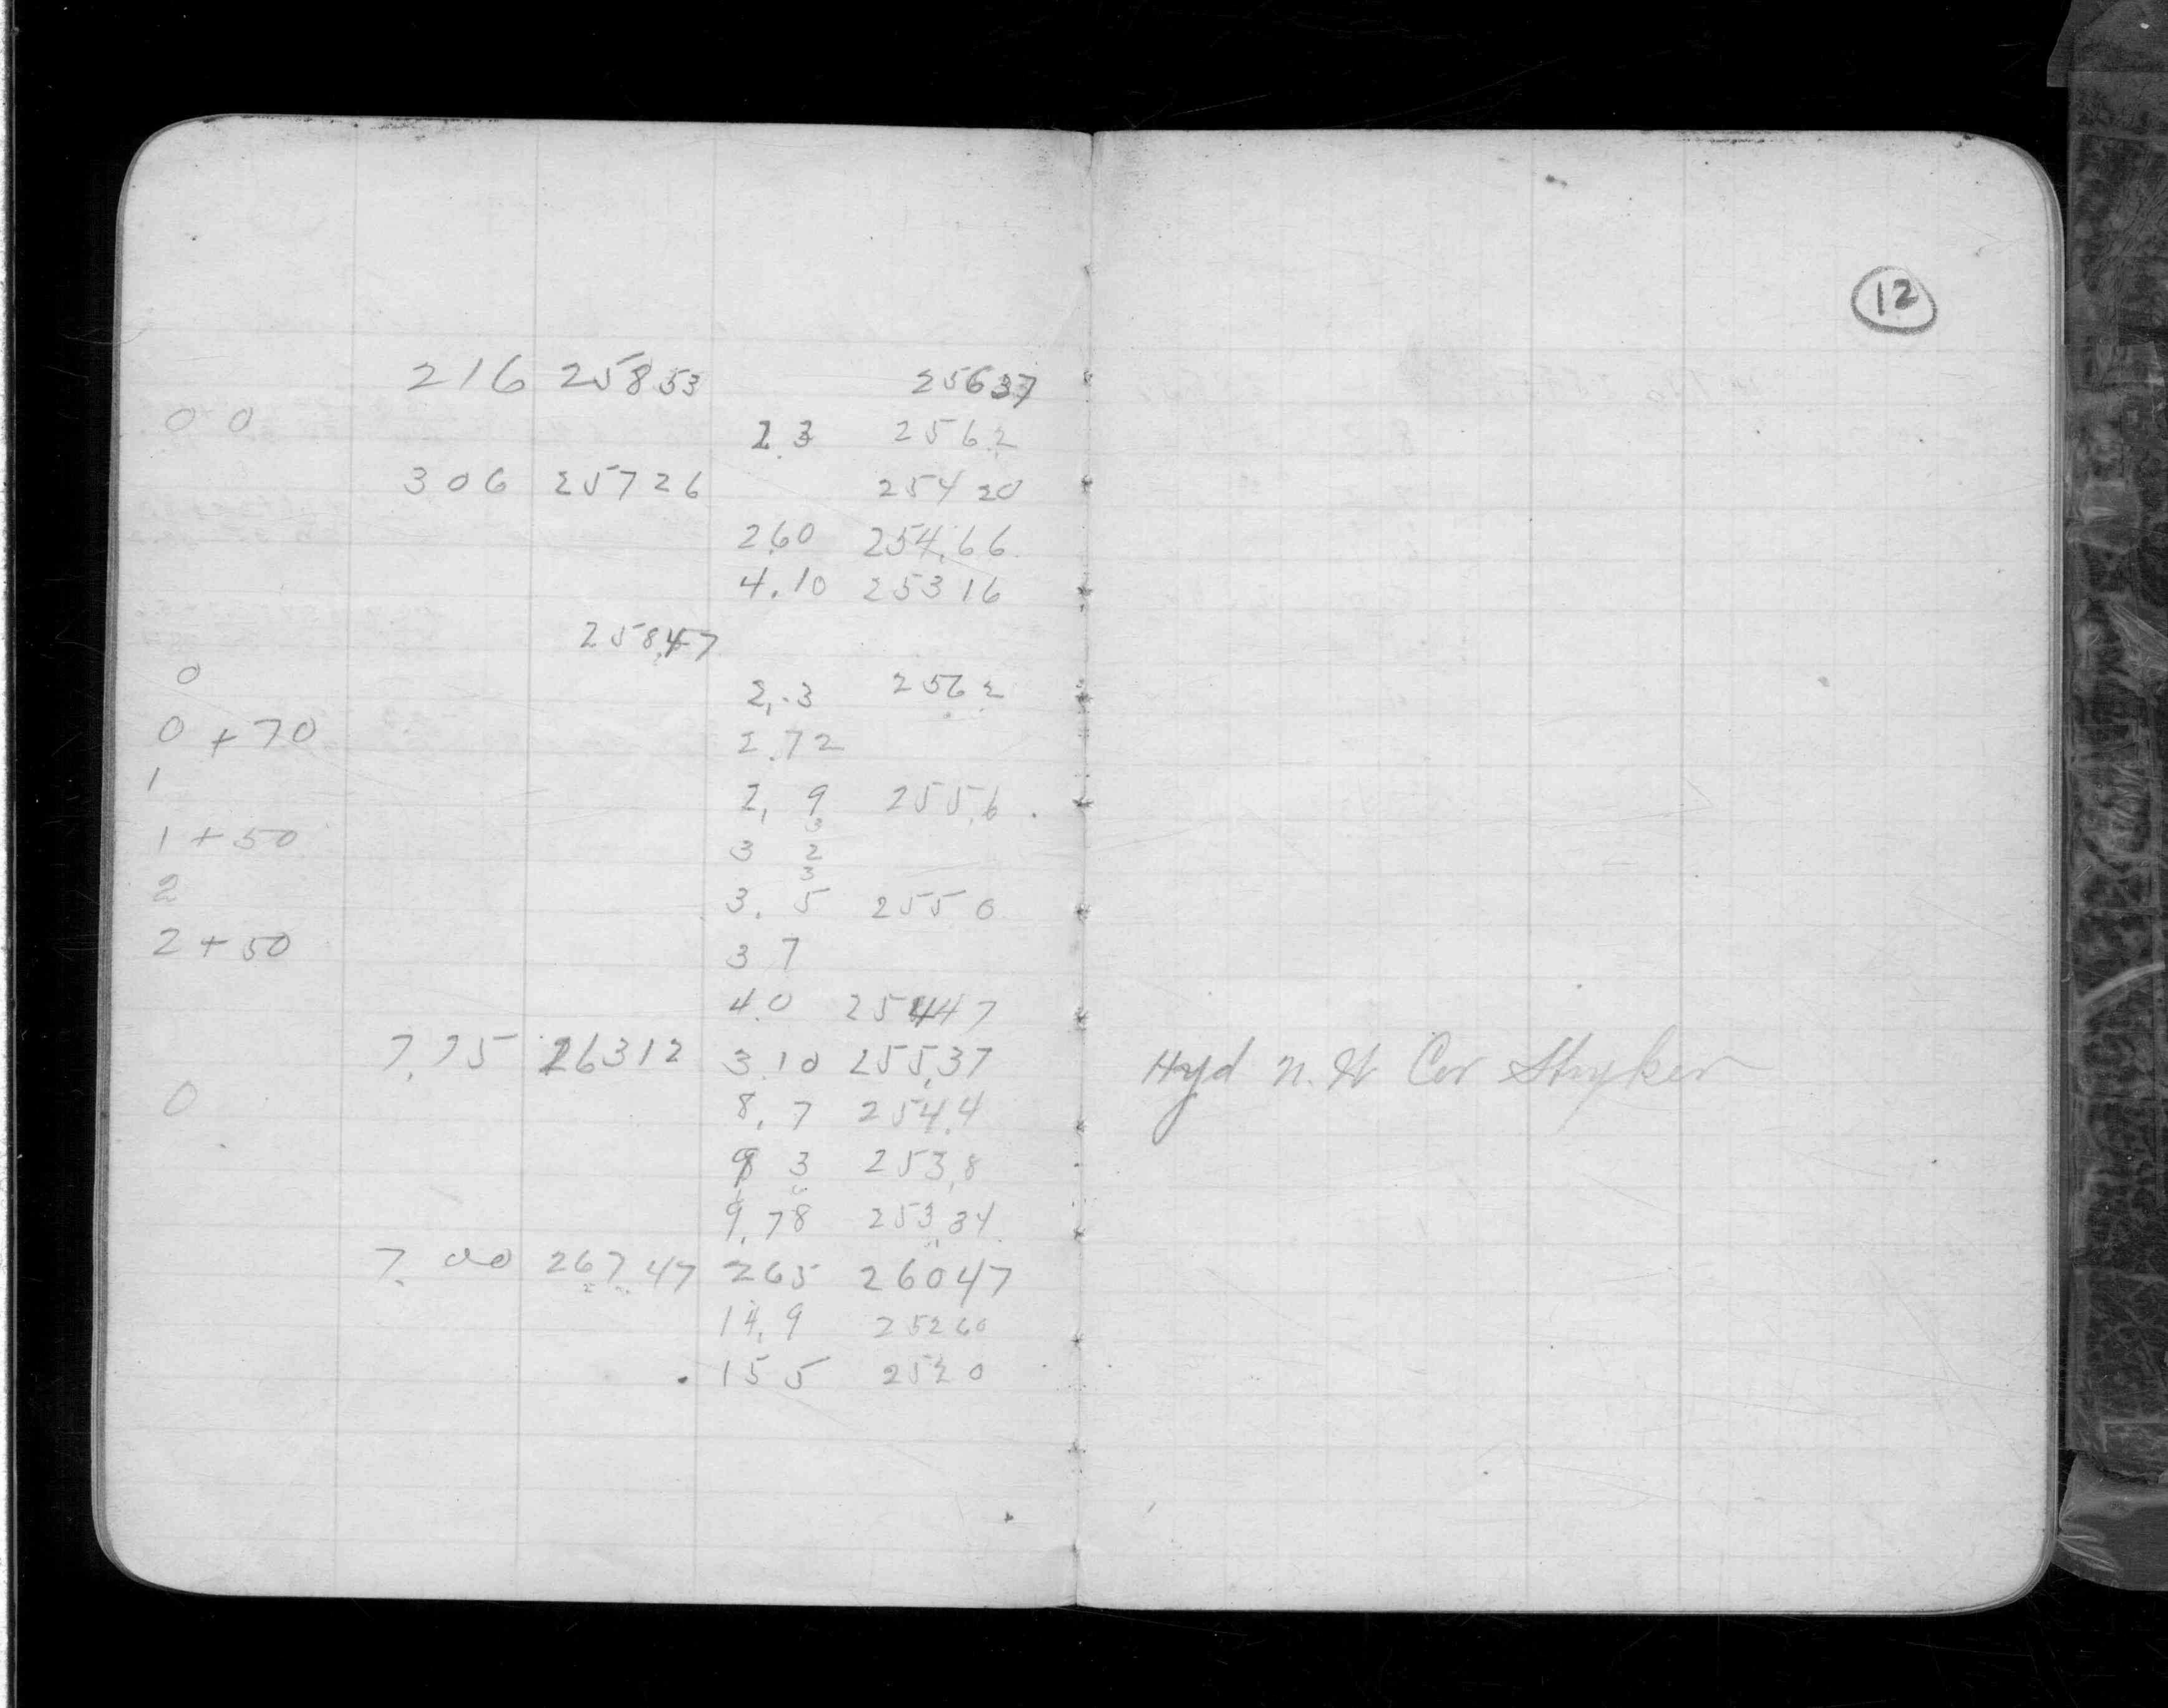 12
216 25853 25637
0 0 2.3 256.2
306 25726 254 20
2.60 254.66
4.10 253 16
258.47
0 2.3 256 2
0 + 70 2.72
1 2.9 255.6
1 + 50 3 2
2 3.5 255 0
2 + 50 3 7
4.0 254 47
7.75 26312 3.10 255.37
Hyd N.W Cor Stryker
0 8.7 254.4
9 3 253.8
9.78 253.34
7.00 267.47 265 26047
14.9 25260
15 5 252 0